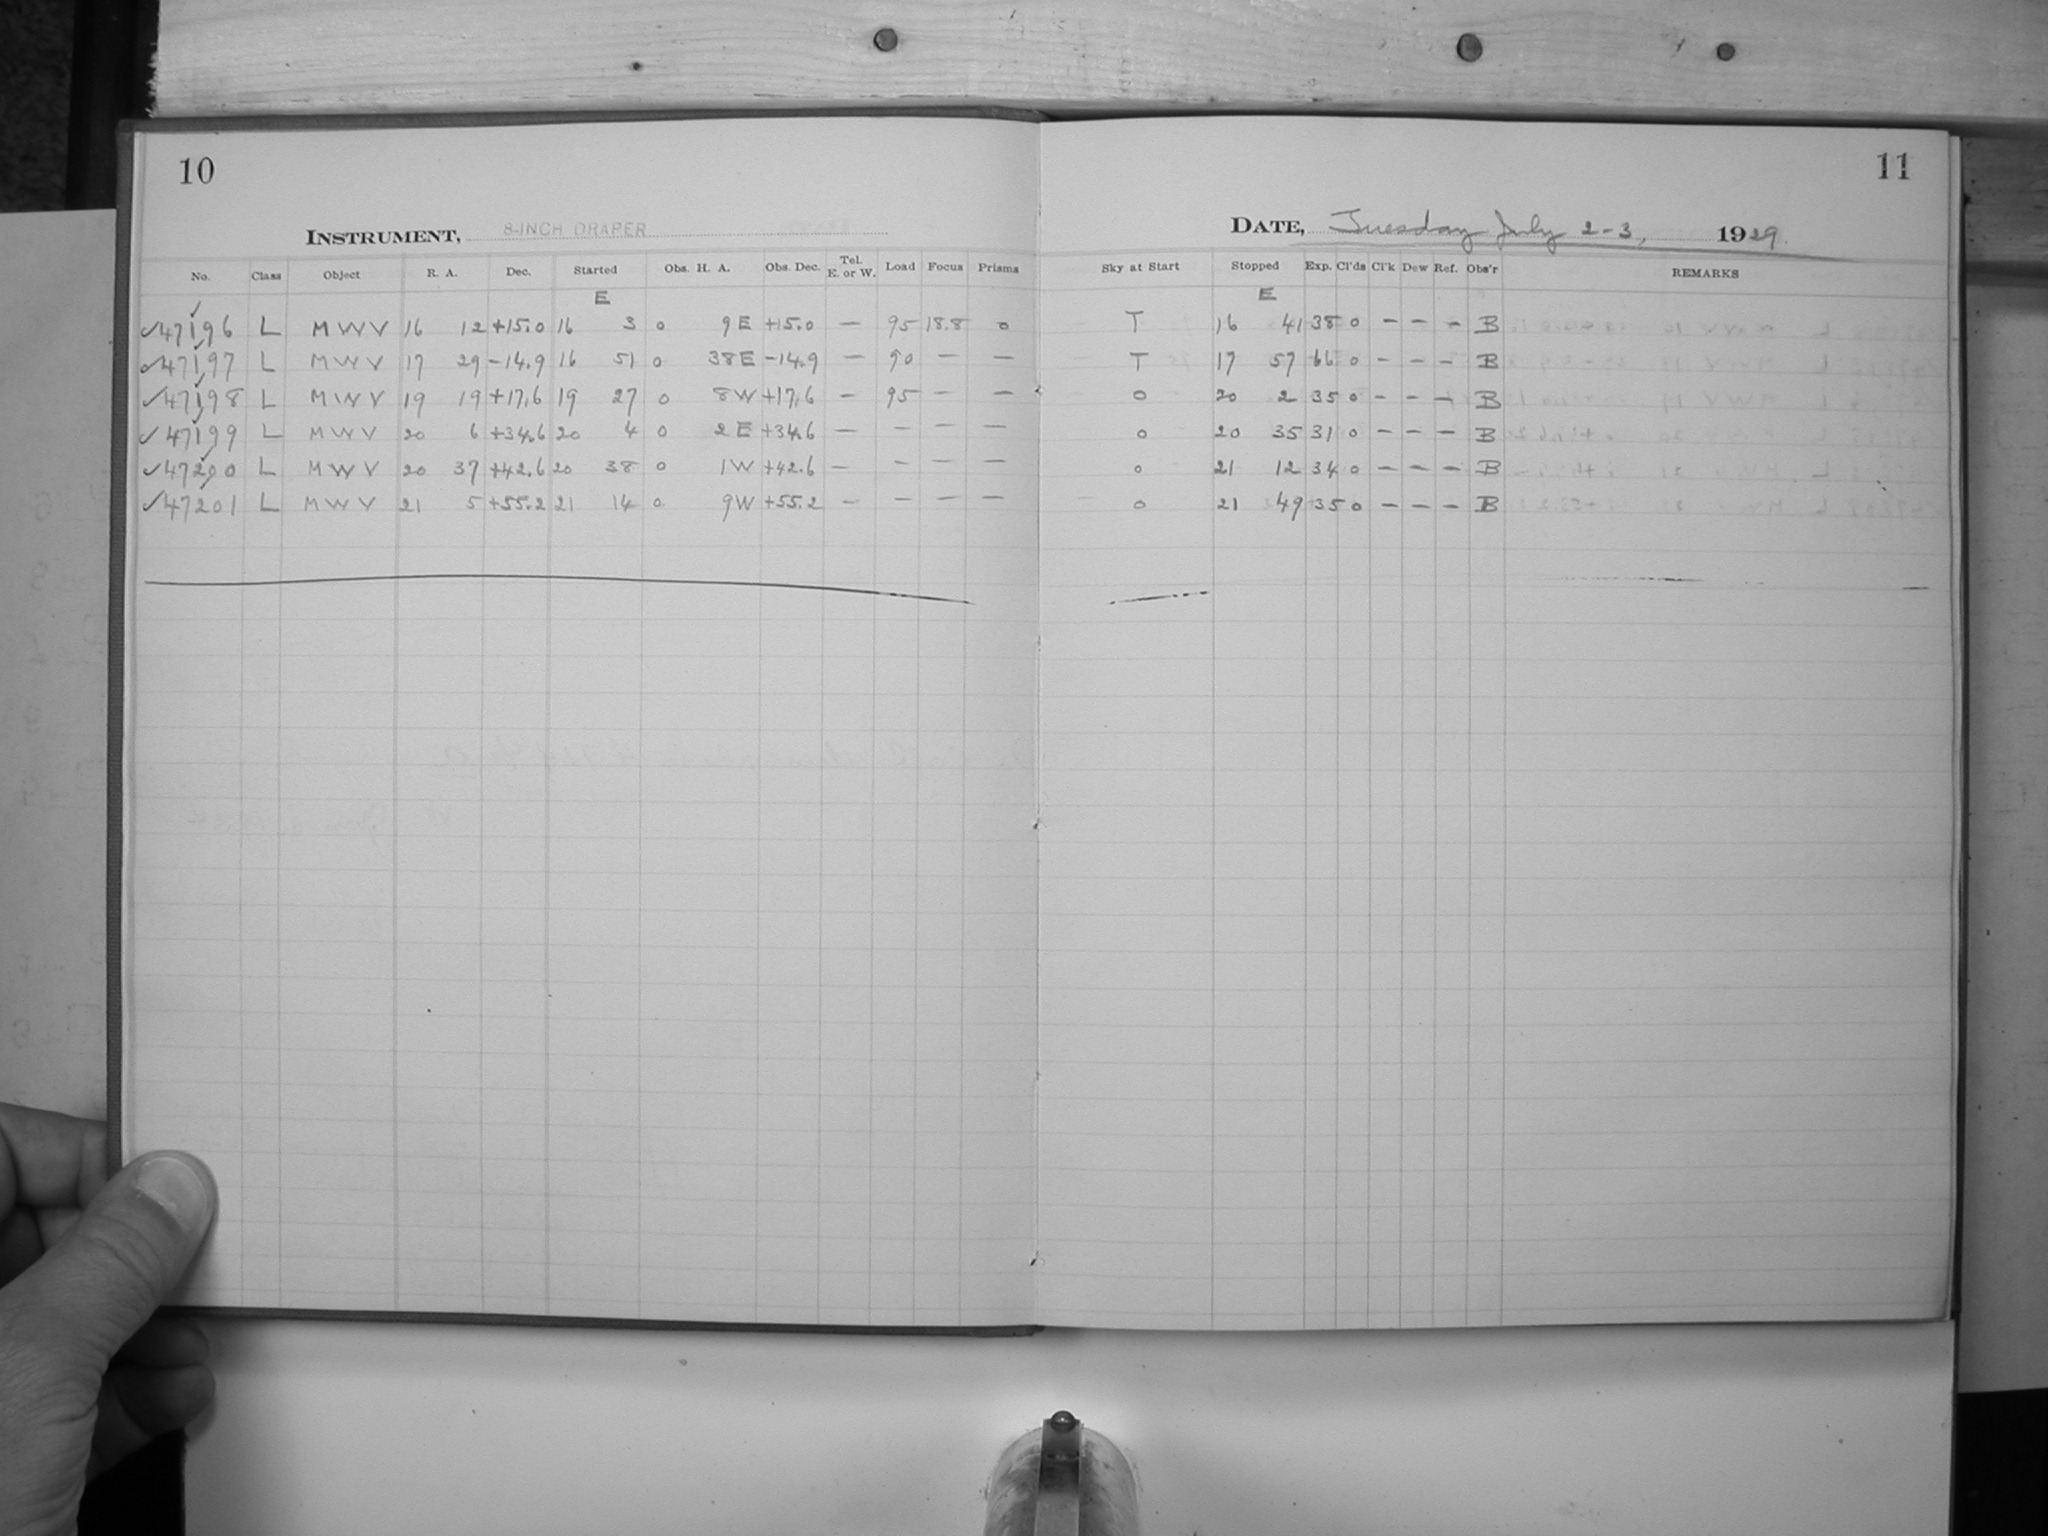 10
INSTRUMENT, 8-INCH DRAPER
No. Class Object R. A. Dec. Started Obs. H. A. Obs. Dec. Tel. E. or W. Load Focus Prisms
E
✓47196 L MWV 16 12 +15.0 16 3 0 9 E +15.0 — 95 18.8 0
✓47197 L MWV 17 29 -14.9 16 51 0 38 E -14.9 — 90 — —
✓47198 L MWV 19 19 +17.6 19 27 0 8 W +17.6 — 95 — —
✓47199 L MWV 20 6 +34.6 20 4 0 2 E +34.6 — — — —
✓47200 L MWV 20 37 +42.6 20 38 0 1 W +42.6 — — — —
✓47201 L MWV 21 5 +55.2 21 14 0 9 W +55.2 — — — —
11
DATE, Tuesday July 2-3, 1929.
Sky at Start Stopped Exp. Cl'ds Cl'k Dew Ref. Obs'r REMARKS
E
T 16 41 38 0 — — — B
T 17 57 66 0 — — — B
0 20 2 35 0 — — — B
0 20 35 31 0 — — — B
0 21 12 34 0 — — — B
0 21 49 35 0 — — — B